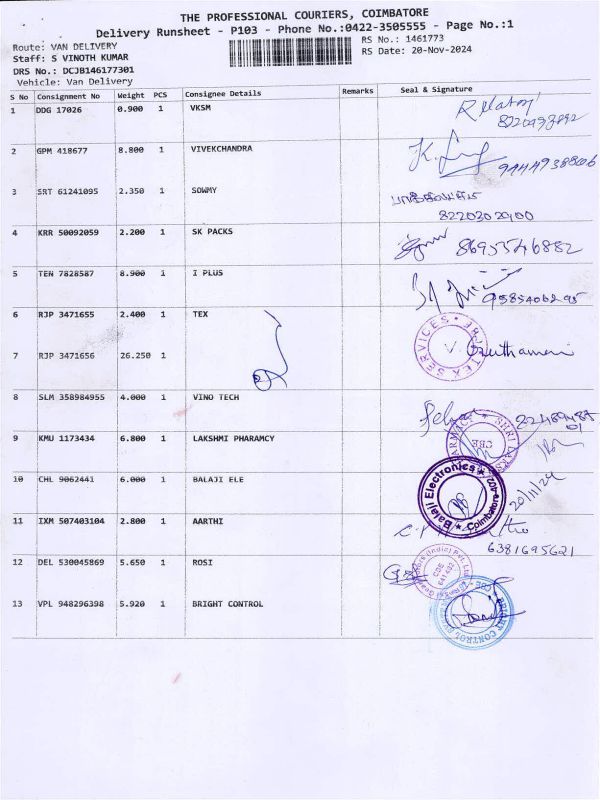 THE PROFESSIONAL COURIERS, COIMBATORE
Delivery Runsheet - P103 - Phone No.:0422-3505555 - Page No.:1
Route: VAN DELIVERY
RS No.: 1461773
Staff: S VINOTH KUMAR
RS Date: 20-Nov-2024
DRS No.: DCJB146177301
Vehicle: Van Delivery
S No Consignment No Weight PCS Consignee Details Remarks Seal & Signature
1 DDG 17026 0.900 1 VKSM
2 GPM 418677 8.800 1 VIVEKCHANDRA
3 SRT 61241095 2.350 1 SOWMY
8220302900
4 KRR 50092059 2.200 1 SK PACKS 8695546882
5 TEN 7828587 8.900 1 I PLUS 9585406295
6 RJP 3471655 2.400 1 TEX
SERVICES
7 RJP 3471656 26.250 1
8 SLM 358984955 4.000 1 VINO TECH
9 KMU 1173434 6.800 1 LAKSHMI PHARAMCY CBE
10 CHL 9062441 6.000 1 BALAJI ELE
Balaji Electronics Coimbatore
20/11/24
11 IXM 507403104 2.800 1 AARTHI
6381695621
12 DEL 530045869 5.650 1 ROSI
CBE
13 VPL 948296398 5.920 1 BRIGHT CONTROL
BRIGHT CONTROL